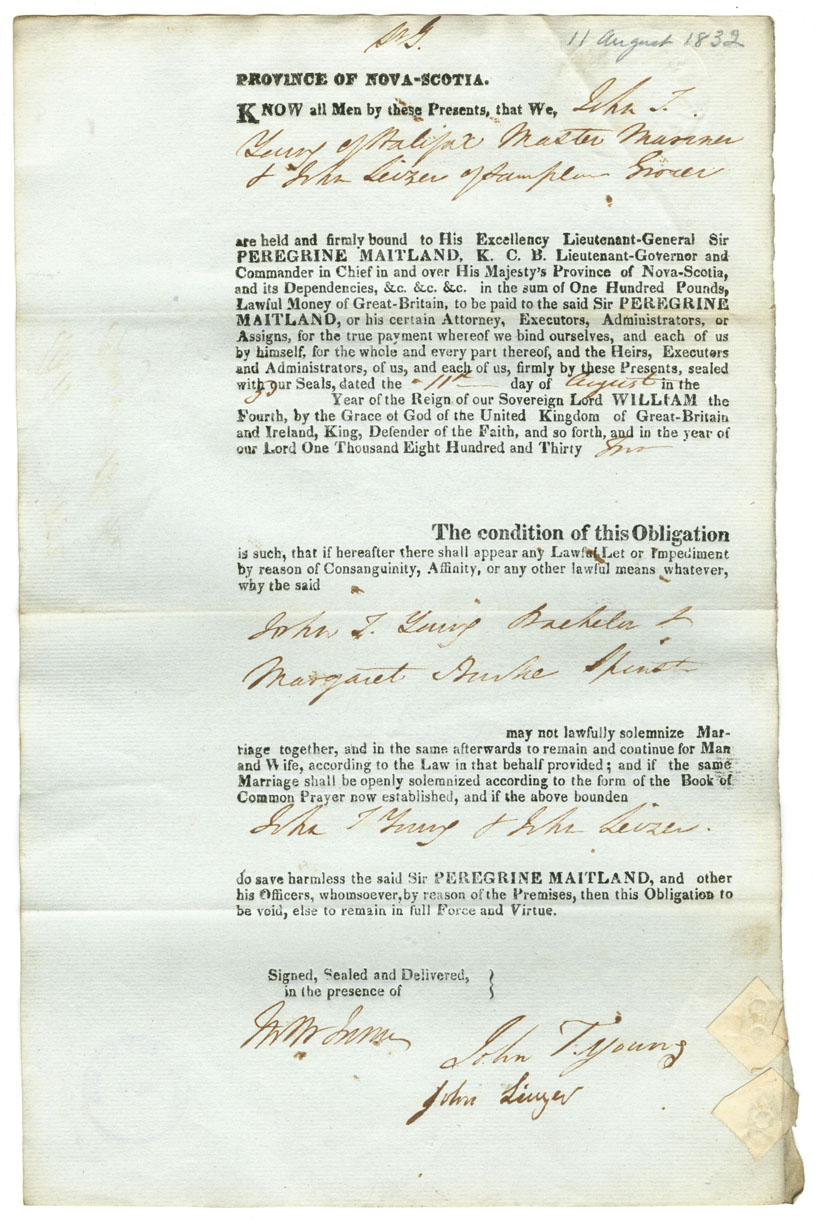 11 August 1832
PROVINCE OF NOVA-SCOTIA.
KNOW all Men by these Presents, that We, John T.
Young of Halifax Master Mariner
& John Leizer of Grocer
are held and firmly bound to His Excellency Lieutenant-General Sir
PEREGRINE MAITLAND, K. C. B. Lieutenant-Governor and
Commander in Chief in and over His Majesty's Province of Nova-Scotia,
and its Dependencies, &c. &c. &c. in the sum of One Hundred Pounds,
Lawful Money of Great-Britain, to be paid to the said Sir PEREGRINE
MAITLAND, or his certain Attorney, Executors, Administrators, or
Assigns, for the true payment whereof we bind ourselves, and each of us
by himself, for the whole and every part thereof, and the Heirs, Executors
and Administrators, of us, and each of us, firmly by these Presents, sealed
with our Seals, dated the 11th day of August in the
3d Year of the Reign of our Sovereign Lord WILLIAM the
Fourth, by the Grace of God of the United Kingdom of Great-Britain
and Ireland, King, Defender of the Faith, and so forth, and in the year of
our Lord One Thousand Eight Hundred and Thirty two
The condition of this Obligation
is such, that if hereafter there shall appear any Lawful Let or Impediment
by reason of Consanguinity, Affinity, or any other lawful means whatever,
why the said
John T. Young Bachelor &
Margaret Burke Spinst
may not lawfully solemnize Mar-
riage together, and in the same afterwards to remain and continue for Man
and Wife, according to the Law in that behalf provided; and if the same
Marriage shall be openly solemnized according to the form of the Book of
Common Prayer now established, and if the above bounden
John T Young & John Leizer.
do save harmless the said Sir PEREGRINE MAITLAND, and other
his Officers, whomsoever, by reason of the Premises, then this Obligation to
be void, else to remain in full Force and Virtue.
Signed, Sealed and Delivered, }
in the presence of }
John T. Young
John Leizer